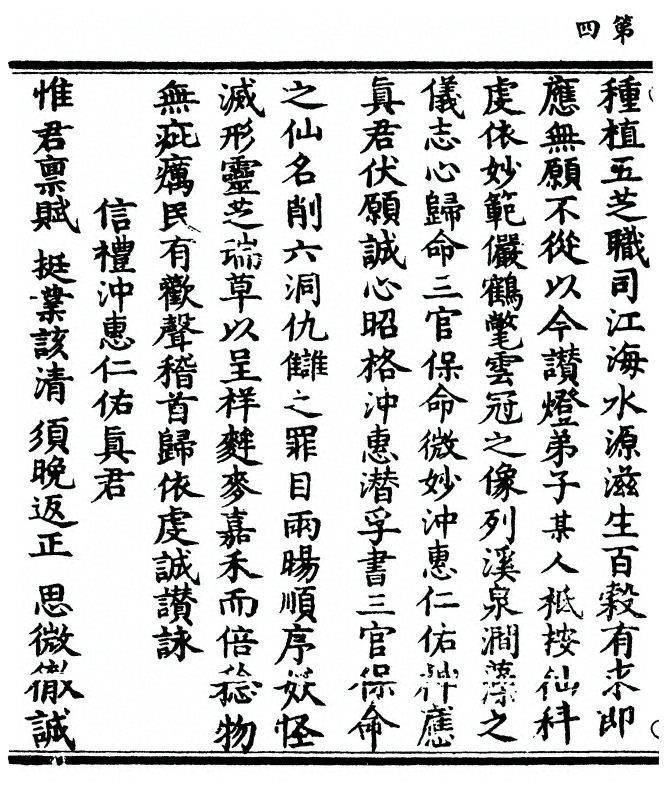 第四
種植五芝職司江海水源滋生百穀有求即
應無願不從以今讃燈弟子某人祇按仙科
虔依妙範儼鶴氅雲冠之像列溪泉澗藻之
儀志心歸命三官保命微妙沖惠仁佑神應
眞君伏願誠心昭格沖惠潜孚書三官保命
之仙名削六洞仇讎之罪目雨暘順序妖怪
滅形靈芝瑞草以呈祥麰麥嘉禾而倍稔物
無疵癘民有歡聲稽首歸依虔誠讃詠
信禮沖惠仁佑眞君
惟君禀賦 挺業該清 須晚返正 思微徹誠